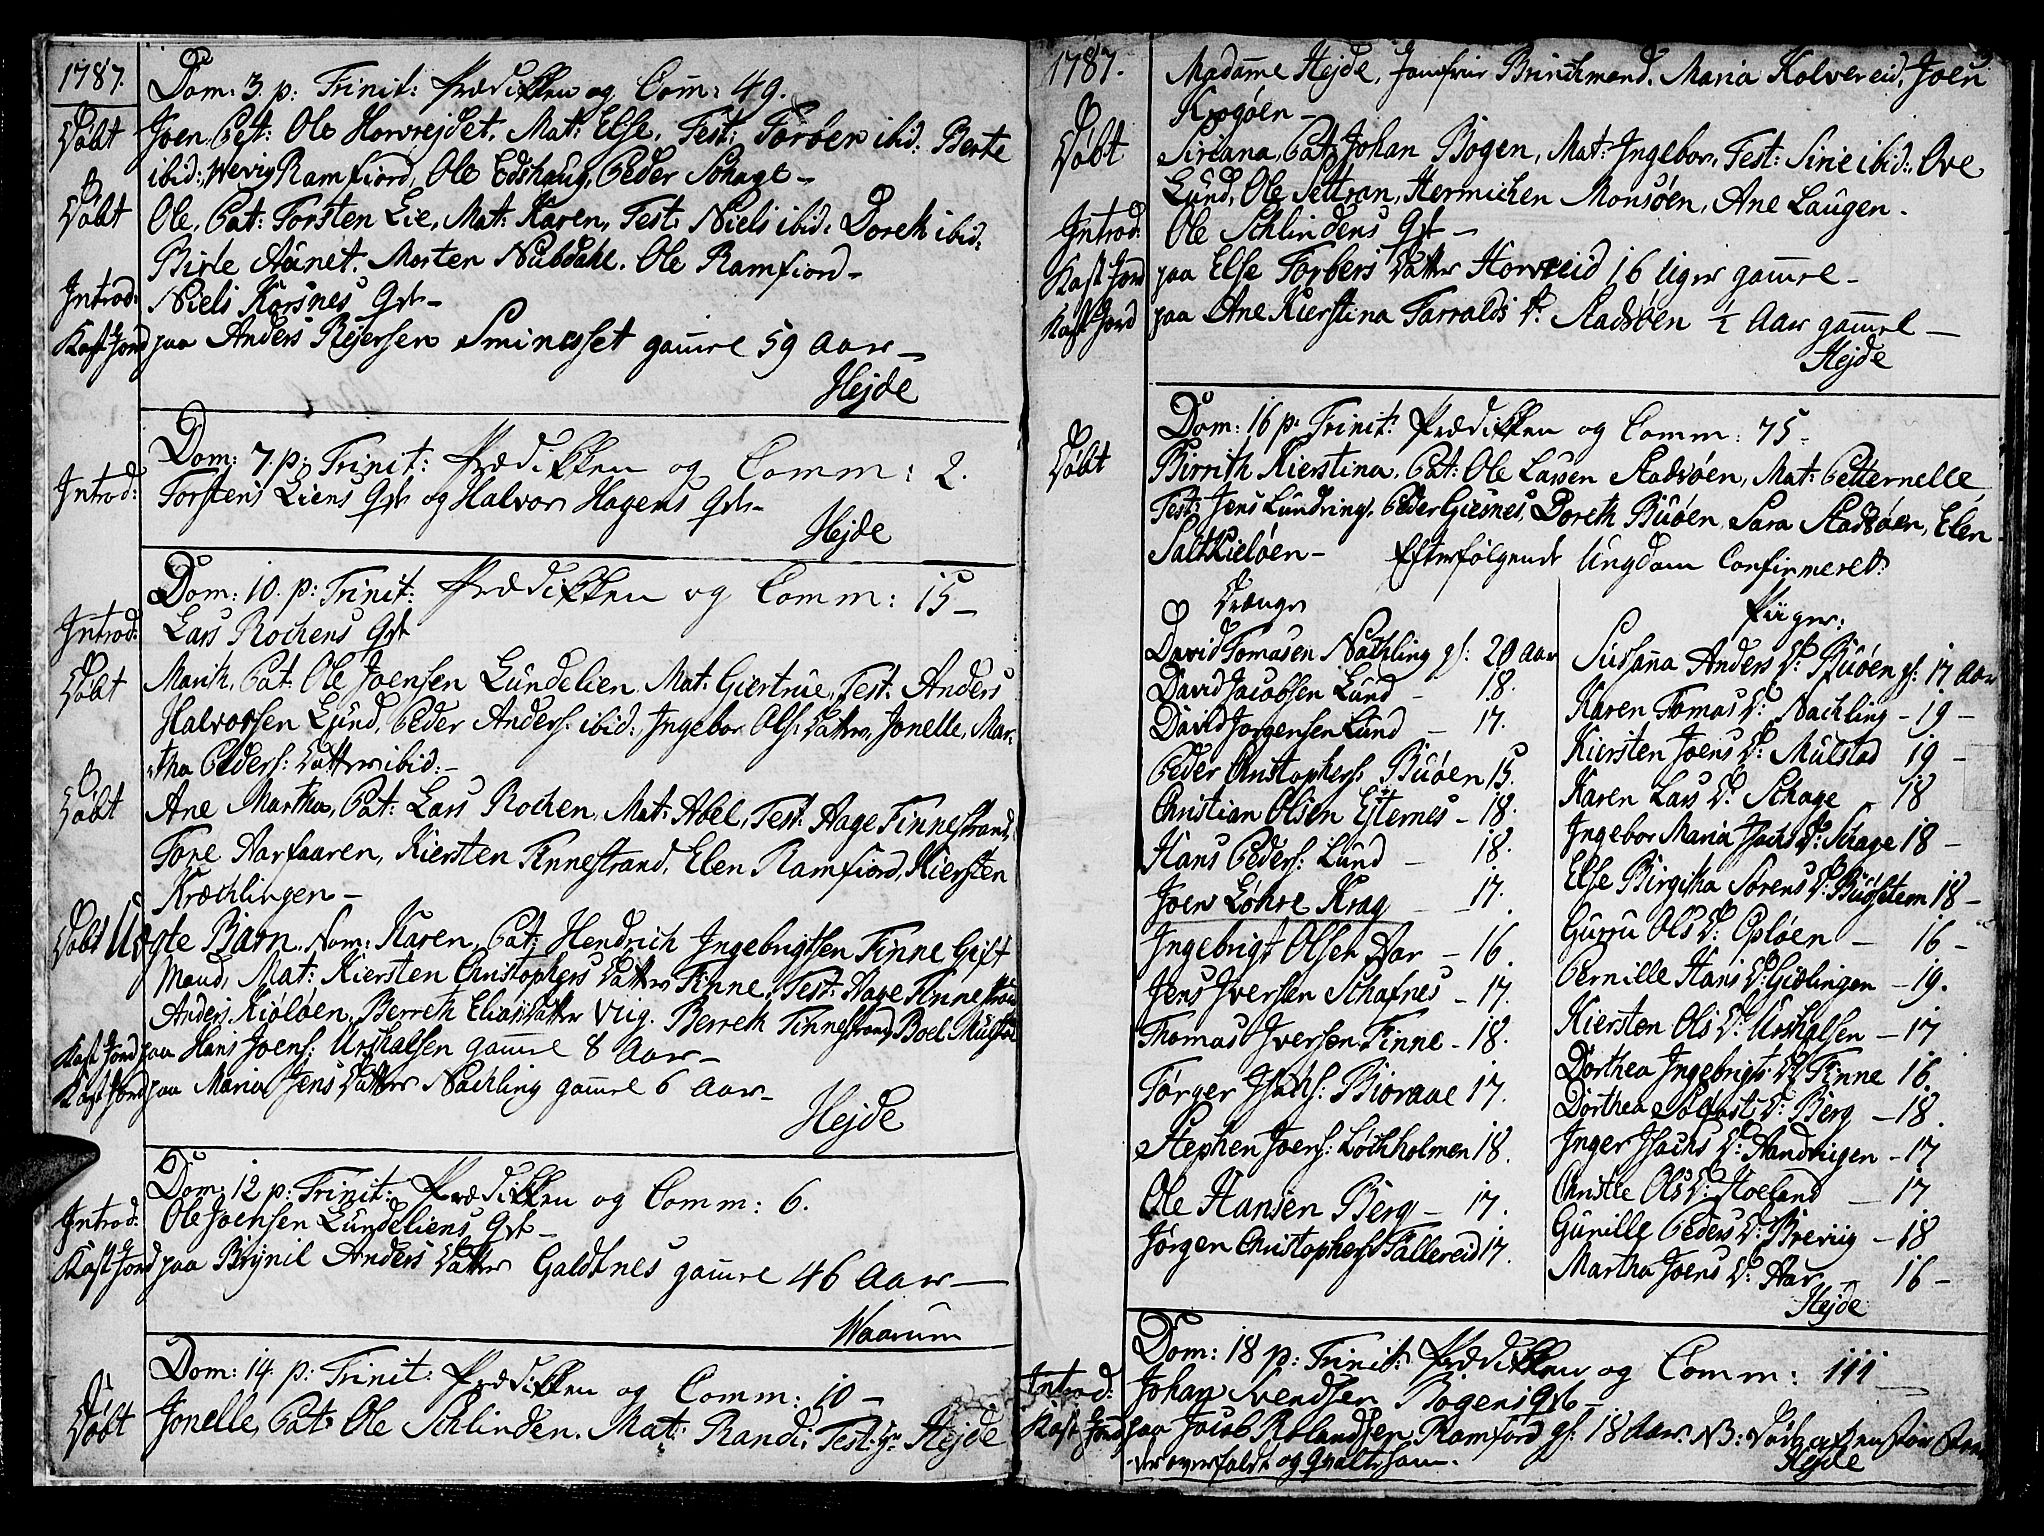 1787.
Dom: 3. p: Trinit: Prædikken og Com: 49.
Døbt Joen, Pat: Ole Horvejdet, Mat: Else, Test: Torber ibid: Berte
ibid:, Wevig Ramfiord, Ole Edshaug, Peder Schage –
Døbt Ole, Pat: Torsten Lie, Mat: Karen, Test: Niels ibid: Doreth ibid:
Birle Aunet, Morten Nubdahl, Ole Ramfiord –
Introd: Niels Korsnes Qv: –
Kast Jord paa Anders Rejersen Sminesset gamel 59 Aar –
Hejde
Dom: 7. p: Trinit: Prædikken og Comm: 2.
Introd: Torstens Liens Qv: og Halvor Hagens Qv: –
Hejde
Dom: 10. p: Trinit: Prædikken og Comm: 15 –
Introd: Lars Rochens Qv:
Døbt Marith, Pat: Ole Joensen Lundelien, Mat: Giertrue, Test: Anders
Halvorsen Lund, Peder Anders: ibid:, Ingebor Ols: Datter, Jonelle, Mar-
tha Peders: Datter ibid: –
Døbt Ane Martha, Pat: Lars Rochen, Mat: Abel, Test: Aage Finnestrand,
Tore Aarfaaren, Kiersten Finnestrand, Elen Ramfiord, Kiersten
Kræchlingen –
Døbt Uægte Barn, Nom: Karen, Pat: Hendrich Ingebrigtsen Finne Gift
Mand, Mat: Kiersten Christophers Datter Finne, Test: Aage Finnestrand
Anders Kiøløen, Berreth Elias Datter Viig, Berreth Finnestrand, Boel Mulstad
Kast Jord paa Hans Joens: Urshalsen gamel 8 Aar –
Kast Jord paa Maria Jens Datter Nachling gamel 6 Aar –
Hejde
Dom: 12 p: Trinit: Prædikken og Comm: 6.
Introd: Ole Joensen Lundeliens Qv: –
Kast Jord paa Brynil Anders Datter Galdtnes gamel 46 Aar –
Waarum
Dom: 14. p: Trinit: Prædikken og Comm: 10 –
Døbt Jonelle, Pat: Ole Schlinden, Mat: Randi, Test: Hr Hejde
1787.
Madamme Hejde, Jomfrue Brinchmand, Maria Kolvereid, Joen
Krogøen –
Døbt Siriana, Pat: Johan Bogen, Mat: Ingebor, Test: Sirie ibid: Ove
Lund, Ole Settran, Hermichen Monsøen, Ane Laugen.
Introd: Ole Schlindens Qv: –
Kast Jord paa Else Torbers Datter Horveid 16 Uger gamel –
Kast Jord paa Ane Kierstina Tarralds D: Stadsøen ½ Aar gamel –
Hejde
Dom: 16 p: Trinit: Prædikken og Comm: 75 –
Døbt Birrith Kierstina, Pat: Ole Larsen Stadsøen, Mat: Petternelle,
Test: Jens Lundring, Peder Giesnes, Doreth Buøen, Sara Stadsøen, Elen
Saltkieløen – Efterfølgende Ungdom Confirmeret:
Drenge
David Tomasen Nachling gl: 20 Aar
David Jacobsen Lund – 18.
David Jorgensen Lund – 17.
Peder Christophers: Buøen 15.
Christian Olsen Esternes – 18.
Hans Peders: Lund – 18.
Joen Løhre Krag – 17.
Ingebrigt Olsen Aar – 16
Jens Iversen Schafnes – 17.
Thomas Iversen Finne – 18.
Tørger Isachs: Bioraae 17.
Stephen Joens: Lochholmen 18.
Ole Hansen Berg – 17.
Jørgen Christophers: Fallereid 17.
Piiger:
Susanna Anders D: Buøen gl: 17 Aar
Karen Tomas D: Nachling – 19 –
Kiersten Joens D: Mulstad 19 –
Karen Lars D: Schage 18
Ingebor Maria Isachs D: Schage 18 –
Else Birgitha Sørens D: Buøstem 18 –
Gurru Ols D: Opløen – 16 –
Pernille Hans D: Gidlingen – 19.
Kiersten Ols D: Urshalsen – 17
Dorthea Ingebrigts D: Finne 16.
Dorthea Solfast D: Berg – 18.
Inger Isachs D: Aandvigen – 17
Christle Ols D: Hoeland – 17
Gunille Peders D: Breviig – 18
Martha Joens D: Aar – 16 –
Hejde
Dom: 18 p: Trinit: Prædikken og Comm: 111
Introd: Johan Svendsen Bogens Qv: –
Kast Jord paa Jacob Rolandsen Ramfiord gl: 18 Aar. NB: Døde af en stor
overfaldt og qvalt ham.
Hejde